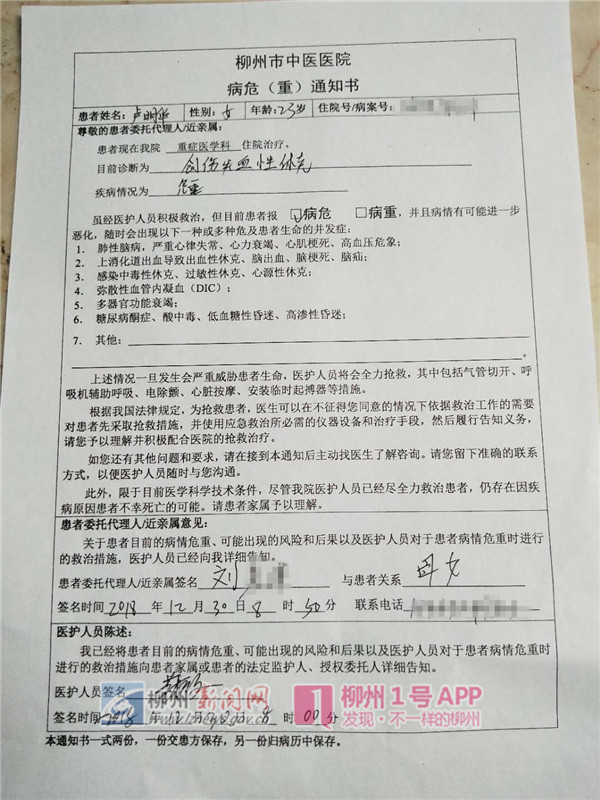 柳州市中医医院
病危（重）通知书
患者姓名：卢明 性别：女 年龄：23岁 住院号/病案号：
尊敬的患者委托代理人/近亲属：
患者现在我院 重症医学科 住院治疗。
目前诊断为 创伤失血性休克
疾病情况为 危重
虽经医护人员积极救治，但目前患者报 ☑病危 □病重，并且病情有可能进一步
恶化，随时会出现以下一种或多种危及患者生命的并发症：
1. 肺性脑病，严重心律失常、心力衰竭、心肌梗死、高血压危象；
2. 上消化道出血导致出血性休克、脑出血、脑梗死、脑疝；
3. 感染中毒性休克、过敏性休克、心源性休克；
4. 弥散性血管内凝血（DIC）；
5. 多器官功能衰竭；
6. 糖尿病酮症、酸中毒、低血糖性昏迷、高渗性昏迷；
7. 其他：
。
上述情况一旦发生会严重威胁患者生命，医护人员将会全力抢救，其中包括气管切开、呼
吸机辅助呼吸、电除颤、心脏按摩、安装临时起搏器等措施。
根据我国法律规定，为抢救患者，医生可以在不征得您同意的情况下依据救治工作的需要
对患者先采取抢救措施，并使用应急救治所必需的仪器设备和治疗手段，然后履行告知义务，
请您予以理解并积极配合医院的抢救治疗。
如您还有其他问题和要求，请在接到本通知后主动找医生了解咨询。请您留下准确的联系
方式，以便医护人员随时与您沟通。
此外，限于目前医学科学技术条件，尽管我院医护人员已经尽全力救治患者，仍存在因疾
病原因患者不幸死亡的可能。请患者家属予以理解。
患者委托代理人/近亲属意见：
关于患者目前的病情危重、可能出现的风险和后果以及医护人员对于患者病情危重时进行
的救治措施，医护人员已经向我详细告知。
患者委托代理人/近亲属签名 刘 与患者关系 母女
签名时间 2018 年 12 月 30 日 8 时 50 分 联系电话
医护人员陈述：
我已经将患者目前的病情危重、可能出现的风险和后果以及医护人员对于患者病情危重时
进行的救治措施向患者家属或患者的法定监护人、授权委托人详细告知。
医护人员签名
签名时间 2018 年 12 月 日 8 时 00 分
柳州新闻网
柳州1号APP
发现·不一样的柳州
本通知书一式两份，一份交患方保存，另一份归病历中保存。